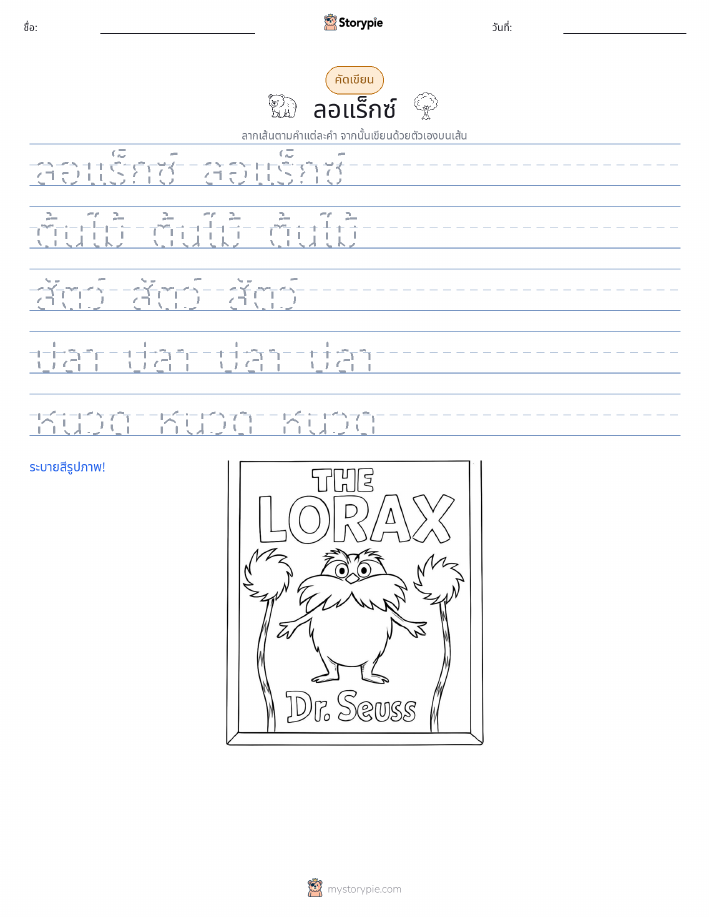 ชื่อ:
Storypie
วันที่:
คัดเขียน
ลอแร็กซ์
ลากเส้นตามคำแต่ละคำ จากนั้นเขียนด้วยตัวเองบนเส้น
ลอแร็กซ์ ลอแร็กซ์
ต้นไม้ ต้นไม้ ต้นไม้
สัตว์ สัตว์ สัตว์
ปลา ปลา ปลา ปลา
หนวด หนวด หนวด
ระบายสีรูปภาพ!
THE
LORAX
Dr. Seuss
mystorypie.com